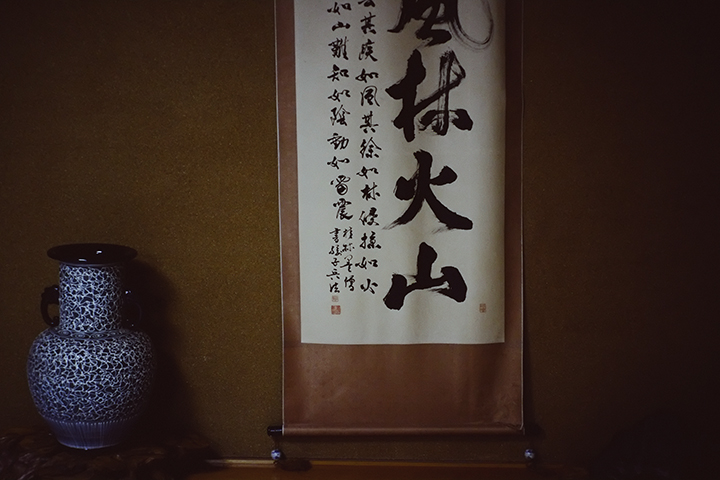 風林火山
其疾如風其徐如林侵掠如火
如山難知如陰動如雷震
書孫子兵法